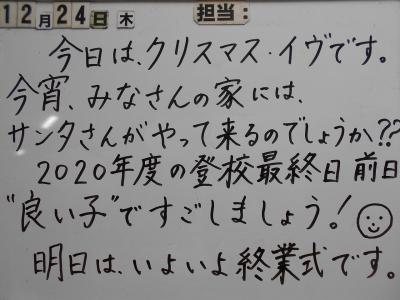 12月24日 木 担当:
今日は、クリスマス・イヴです。
今宵、みなさんの家には、
サンタさんがやって来るのでしょうか??
2020年度の登校最終日前日
"良い子"ですごしましょう!
明日は、いよいよ終業式です。